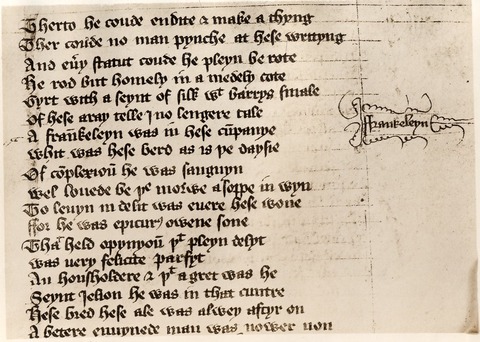 Therto he coude endite & make a thyng
Ther coude no man pynche at hese writyng
And eu͛y statut coude he pleyn be rote
He rod but homely in a medely cote
Gyrt with a seynt of silk wt barrys smale
Of hese aray telle j no lengere tale
A frankeleyn was in hese cūpanye
frankeleyn
whit was hese berd as is þe daysie
Of cōplexioū he was sanguyn
wel louede he þe morwe a soppe in wyn
To leuyn in delit was euere hese wone
ffor he was epicurꝰ owene sone
That held opynyoū þt pleyn delyt
was very felicite parfyt
An housholdere & þt a gret was he
Seynt Jelion he was in that cuntre
Hese bred hese ale was alwey aftyr on
A betere enuynede man was nower non